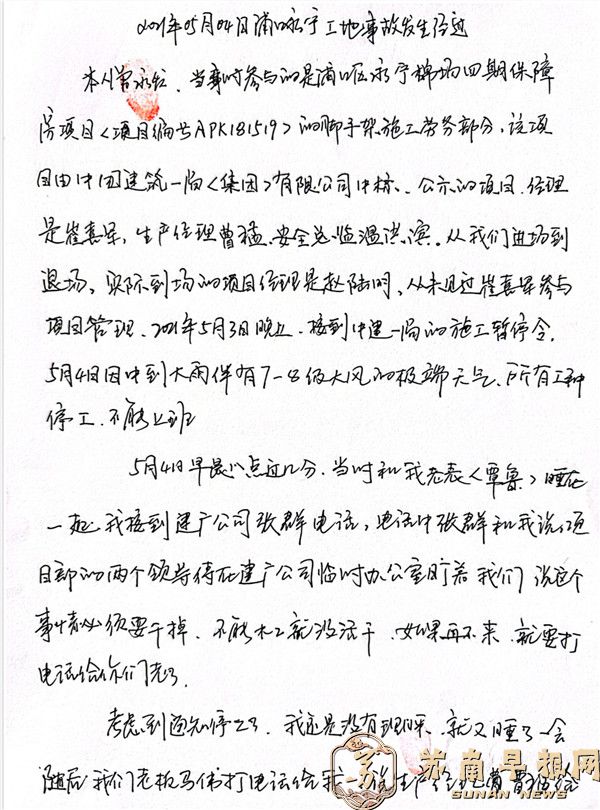 2021年05月04日浦口永宁工地事故发生经过
本人曾永红、当事时参与的是浦口区永宁棉场四期保障
房项目<项目编号APK181519>的脚手架施工劳务部分,该项
目由中国建筑一局<集团>有限公司中标、公示的项目经理
是崔喜杲,生产经理曹猛、安全总监温洪滨。从我们进场到
退场、实际到场的项目经理是赵陆明、从未见过崔喜杲参与
项目管理、2021年5月3日晚上、接到中建一局的施工暂停令,
5月4日因中到大雨伴有7-8级大风的极端天气、所有工种
停工、不能上班
5月4日早晨八点过几分、当时和我老表<覃鲁>睡在
一起我接到建广公司张群电话,电话中张群和我说项
目部的两个领导待在建广公司临时办公室盯着我们说这个
事情必须要干掉、不能木工就没活干、如果再不来、就要打
电话给你们老
考虑到通知停工了、我还是没有理睬、就又睡了一会
随后我们老板马伟打电话给我 生产经理曹
苏南早报网
SUNAN NEWS